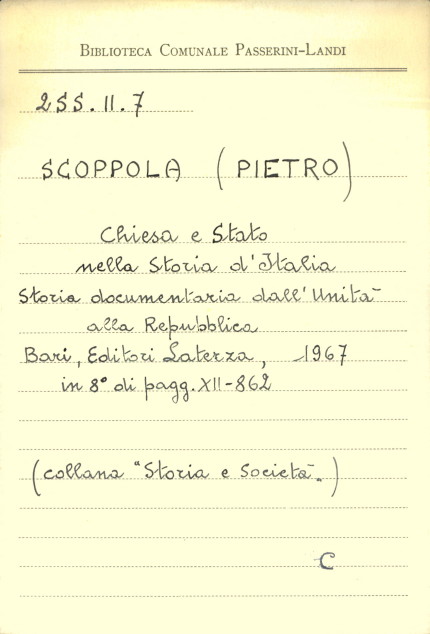 BIBLIOTECA COMUNALE PASSERINI-LANDI
2SS.II.7
SCOPPOLA (PIETRO)
Chiesa e Stato
nella Storia d'Italia
Storia documentaria dall'Unità
alla Repubblica
Bari, Editori Laterza, 1967
in 8° di pagg. XII-862
(collana "Storia e Società")
C